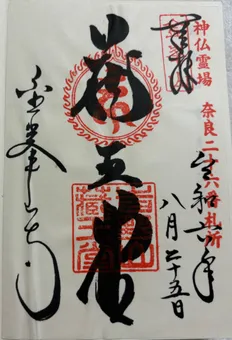 奉拝
神仏霊場
奈良二十六番札所
令和六年
八月二十五日
蔵王堂
金峯山寺